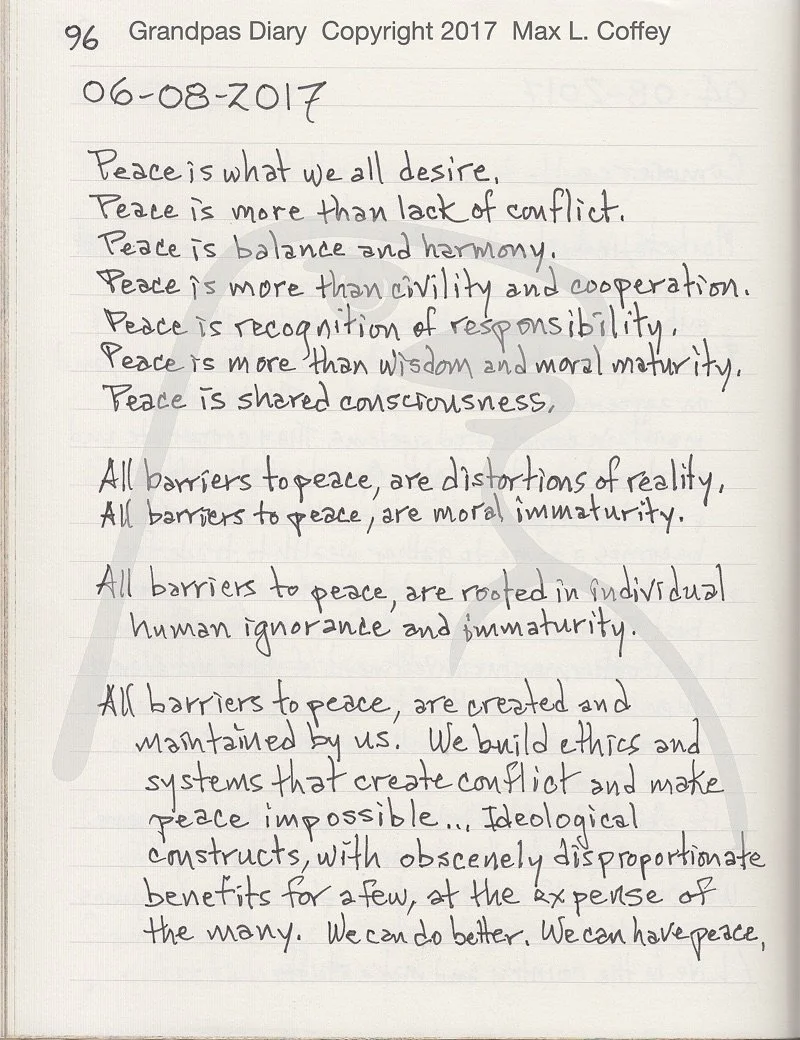 96 Grandpas Diary Copyright 2017 Max L. Coffey
06-08-2017
Peace is what we all desire.
Peace is more than lack of conflict.
Peace is balance and harmony.
Peace is more than civility and cooperation.
Peace is recognition of responsibility.
Peace is more than wisdom and moral maturity.
Peace is shared consciousness.
All barriers to peace, are distortions of reality.
All barriers to peace, are moral immaturity.
All barriers to peace, are rooted in individual
human ignorance and immaturity.
All barriers to peace, are created and
maintained by us. We build ethics and
systems that create conflict and make
peace impossible... Ideological
constructs, with obscenely disproportionate
benefits for a few, at the expense of
the many. We can do better. We can have peace,